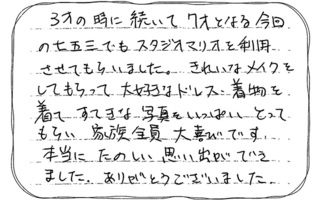 3才の時に続いて 7才となる今回
の七五三でもスタジオマリオを利用
させてもらいました。きれいなメイクを
してもらって 大好きなドレス・着物を
着て すてきな写真をいっぱい とって
もらい 家族全員 大喜びです。
本当に たのしい 思い出ができ
ました。ありがとうございました